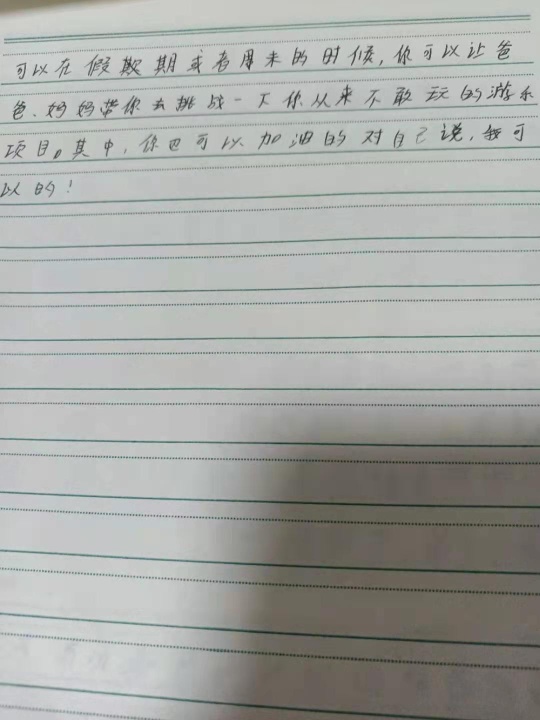 可以在假欺期或者周末的时候,你可以让爸
爸、妈妈带你去挑战一下你从来不敢玩的游乐
项目。其中,你也可以加油的对自己说,我可
以的!